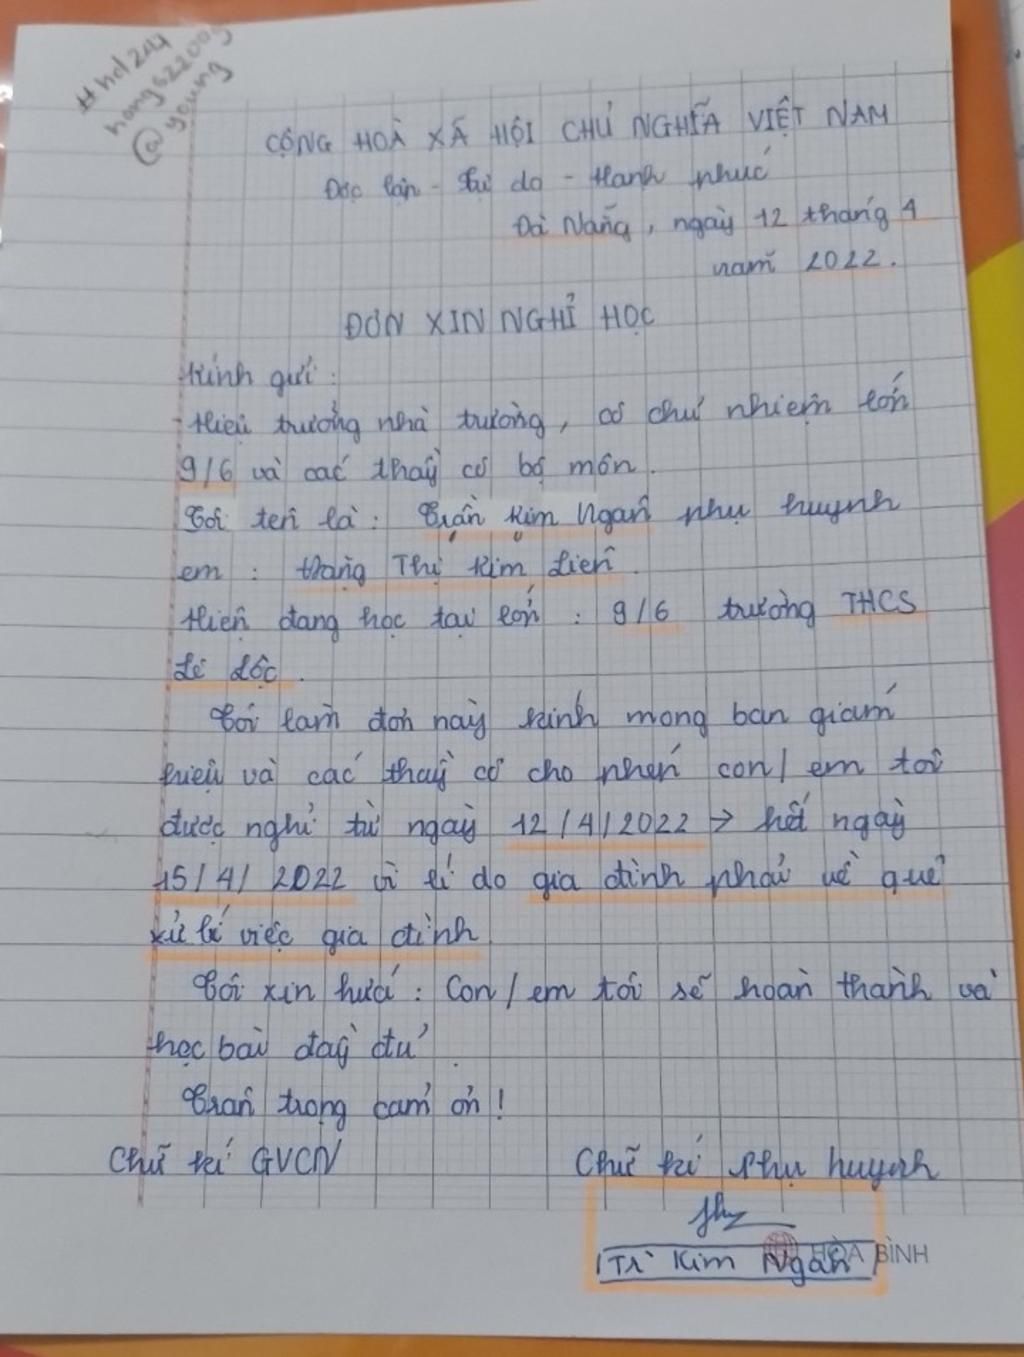 #hd247
hong62200g
@young
CỘNG HOÀ XÃ HỘI CHỦ NGHĨA VIỆT NAM
Độc lập - Tự do - Hạnh phúc
Đà Nẵng, ngày 12 tháng 4
năm 2022.
ĐƠN XIN NGHỈ HỌC
Kính gửi :
- Hiệu trưởng nhà trường, cô chủ nhiệm lớp
9/6 và các thầy cô bộ môn.
Tôi tên là : Trần Kim Ngân phụ huynh
em : Hoàng Thị Kim Liên.
Hiện đang học tại lớp : 9/6 trường THCS
Lê Độc.
Tôi làm đơn này kính mong ban giám
hiệu và các thầy cô cho phép con/em tôi
được nghỉ từ ngày 12/4/2022 → hết ngày
15/4/2022 vì lí do gia đình phải về quê
xử lí việc gia đình
Tôi xin hứa : Con/em tôi sẽ hoàn thành và
học bài đầy đủ.
Trân trọng cảm ơn!
Chữ kí GVCN Chữ kí phụ huynh
Tr Kim Ngân
HÒA BÌNH